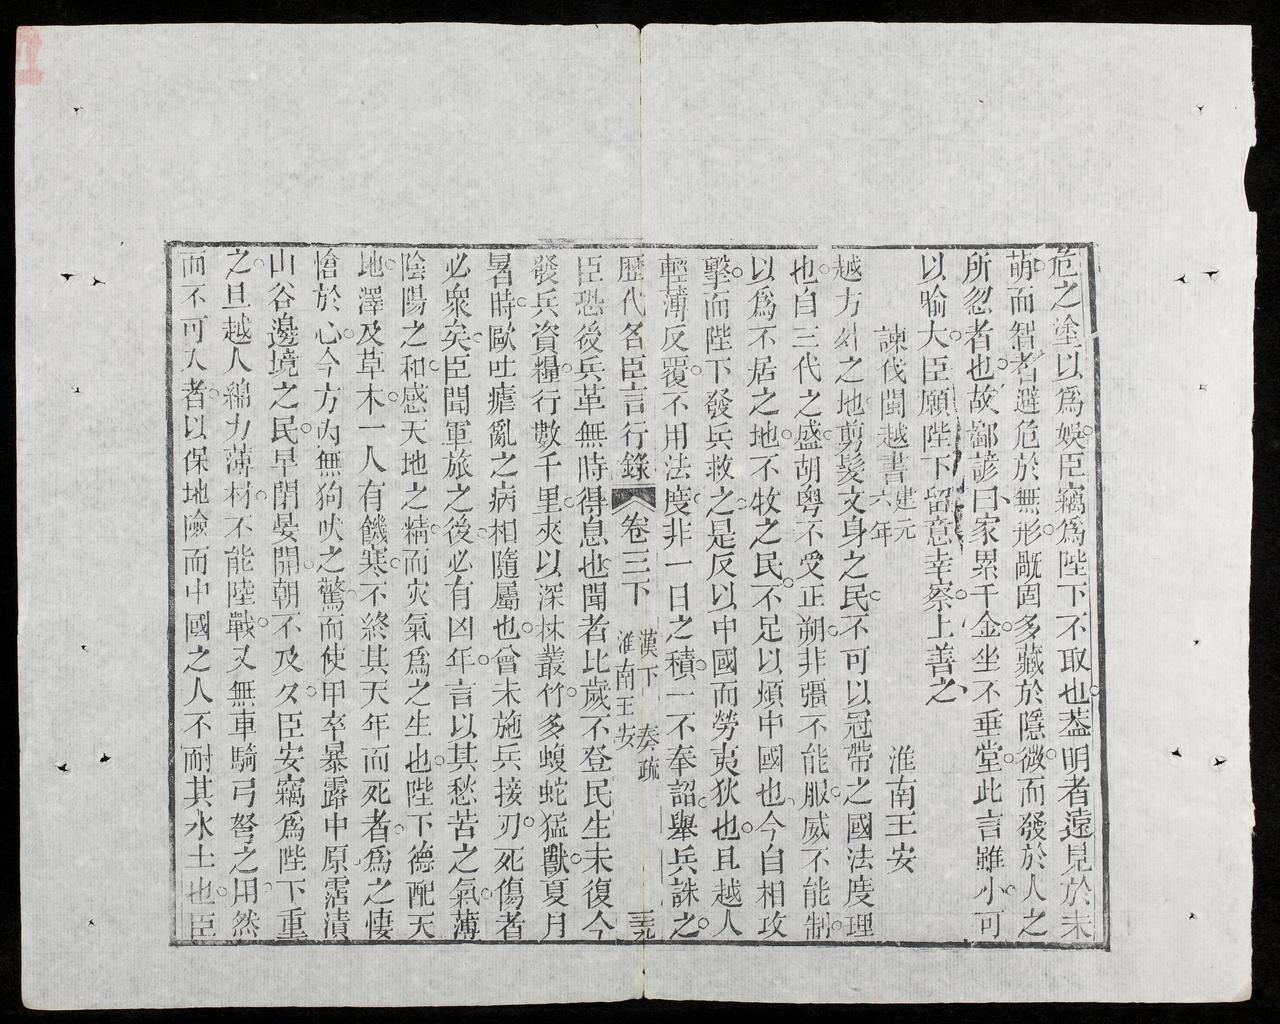 危之塗以爲娛臣竊爲陛下不取也葢明者遠見於未
萌而智者避危於無形旤固多藏於隱微而發於人之
所忽者也故鄙諺曰家累千金坐不垂堂此言雖小可
以喻大臣願陛下留意幸察上善之
諫伐閩越書建元六年 淮南王安
越方外之地剪髮文身之民不可以冠帶之國法度理
也自三代之盛胡粤不受正朔非彊不能服威不能制
以爲不居之地不牧之民不足以煩中國也今自相攻
擊而陛下發兵救之是反以中國而勞夷狄也且越人
輕薄反覆不用法度非一日之積一不奉詔舉兵誅之
歷代名臣言行錄 卷三下 漢下 奏疏 淮南王安 三九
臣恐後兵革無時得息也聞者比歲不登民生未復今
發兵資糧行數千里夾以深林叢竹多蝮蛇猛獸夏月
暑時歐吐瘧亂之病相隨屬也曾未施兵接刃死傷者
必衆矣臣聞軍旅之後必有凶年言以其愁苦之氣薄
陰陽之和感天地之精而灾氣爲之生也陛下德配天
地澤及草木一人有饑寒不終其天年而死者爲之悽
愴於心今方內無狗吠之驚而使甲卒暴露中原霑漬
山谷邊境之民早閉晏開朝不及夕臣安竊爲陛下重
之且越人緜力薄材不能陸戰又無車騎弓弩之用然
而不可入者以保地險而中國之人不耐其水土也臣